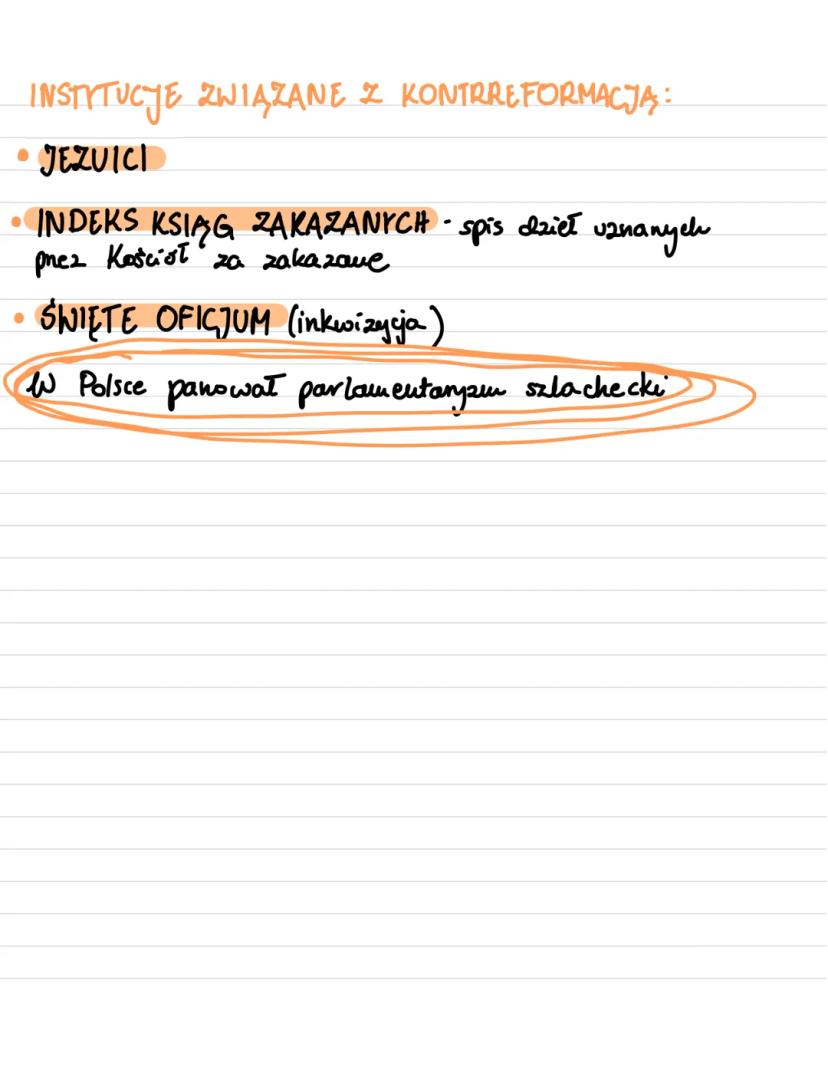 INSTYTUCJE ZWIĄZANE Z KONTRREFORMACJĄ:
• JEZUICI
• INDEKS KSIĄG ZAKAZANYCH - spis dzieł uznanych
przez Kościół za zakazane
• ŚWIĘTE OFICJUM (inkwizycja)
W Polsce panował parlamentaryzm szlachecki